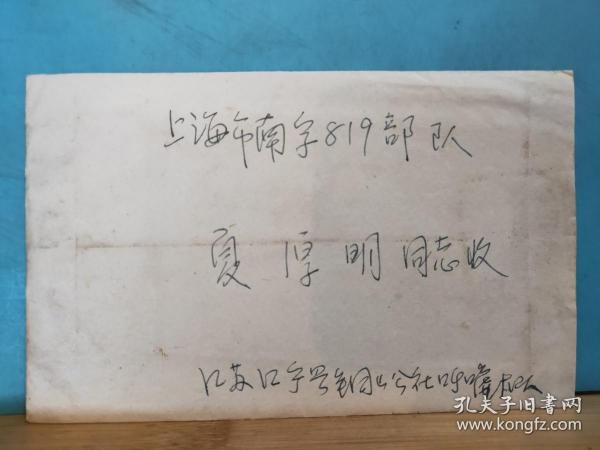 上海市南字819部队
夏厚明同志收
江苏江宁县铜山公社
孔夫子旧书网
www.kongfz.com